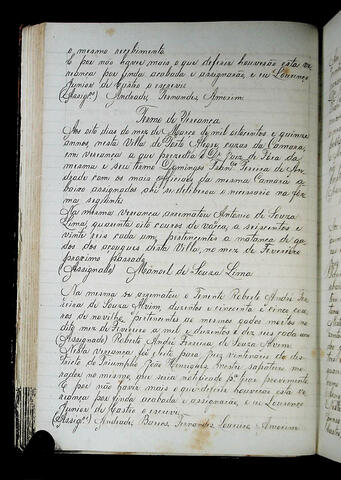 o mesmo recebimento
E por não haver mais o que deferir houverão esta ve
riança por finda acabada e assignarão, e eu Lourenço
Junior de Castro o escrevi.
(Assigdos) Andrade, Fernandes, Amorim.
Termo de Vereança
Aos oito dias do mez de Março de mil oitocentos e quinze
annos nesta Villa de Porto Alegre, cazas da Camara,
em vereança a que prezedio o Dr. Juiz de Fora da
mesma e seu termo Domingos Pereira de An
drade com os mais officiaes da mesma Camara a
baixo assignados ahi se deliberou o necessario na for
ma seguinte
Na mesma vereança arrematou Antonio de Souza
Lima, quarenta oito couros de vacca, a seiscentos e
vinte reis cada um, pertencentes a matança de ga
dos dos açougues desta Villa, no mez de Fevereiro
proximo passado.
(Assignado) Manoel de Souza Lima
Na mesma se arematou o Tenente Roberto André Fer
reira de Souza Alvim, duzentos e cincoenta e cinco cou
ros de novilho, pertencentes ao mesmo gados mortos no
dito mez de Fevereiro a mil e duzentos e dez reis cada um
(Assignado) Roberto André Ferreira de Souza Alvim
Nesta vereança foi eleito para juiz ventenario do dis
tricto do Triumpho João Henriques, mestre sapateiro mo
rador no mesmo que seria notificado pa ficar
E por não haver mais o que deferir houverão esta ve
riança por finda acabada e assignarão, e eu Lourenço
Junior de Castro o escrevi.
(Assigdos) Andrade, Barros, Fernandes, Loureiro, Amorim